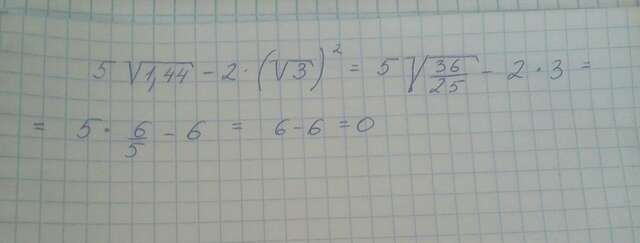 5 √1,44 − 2 · (√3)² = 5 √36/25 − 2 · 3 =
= 5 · 6/5 − 6 = 6 − 6 = 0